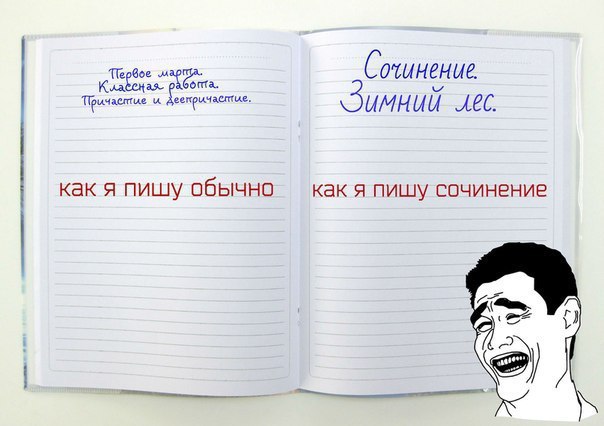 Первое марта.
Классная работа.
Причастие и деепричастие.
как я пишу обычно
Сочинение.
Зимний лес.
как я пишу сочинение